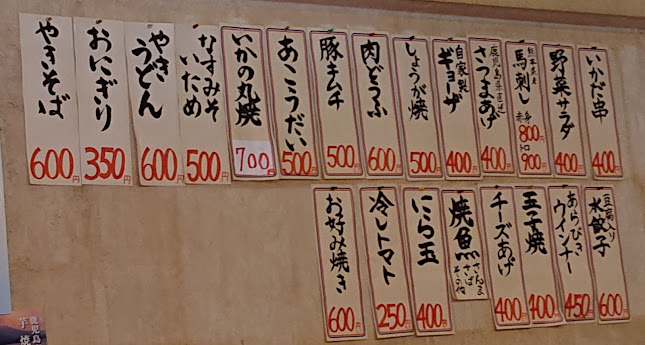 いかだ串 400円
野菜サラダ 400円
熊本名産 馬刺し 赤身 800円 トロ 900円
鹿児島県直送 さつまあげ 400円
自家製 ギョーザ 400円
しょうが焼 500円
肉どうふ 600円
豚キムチ 500円
あこうだい 500円
いかの丸焼 700円
なすみそいため 500円
やきうどん 600円
おにぎり 350円
やきそば 600円
豆腐入り 水餃子 600円
あらびきウインナー 450円
玉子焼 400円
チーズあげ 400円
焼魚 さんま さば その他
にら玉 400円
冷しトマト 250円
お好み焼き 600円
鹿児島
芋焼